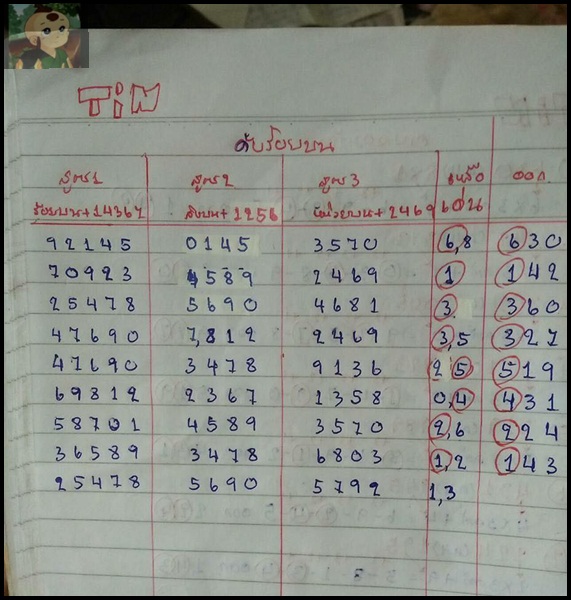 TiM
ดับร้อยบน
สูตร1 สูตร2 สูตร3 เหลือ ออก
ร้อยบน+14367 สิบบน+1256 หน่วยบน+2469 เด่น
92145 0145 3570 6,8 630
70923 4589 2469 1 142
25478 5690 4681 3 360
47690 7,812 2469 3,5 327
47690 3478 9136 25 519
69812 2367 1358 0,4 431
58701 4589 3570 2,6 224
36589 3478 6803 1,2 143
25478 5690 5792 1,3